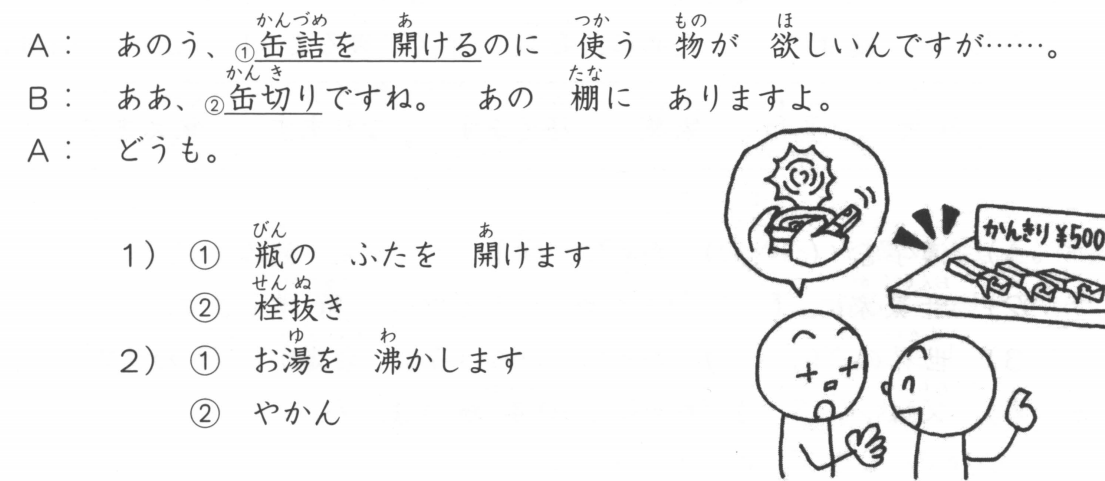 A： あのう、①缶詰を 開けるのに 使う 物が 欲しいんですが……。
B： ああ、②缶切りですね。 あの 棚に ありますよ。
A： どうも。
1） ① 瓶の ふたを 開けます
② 栓抜き
2） ① お湯を 沸かします
② やかん
かんきり ¥500